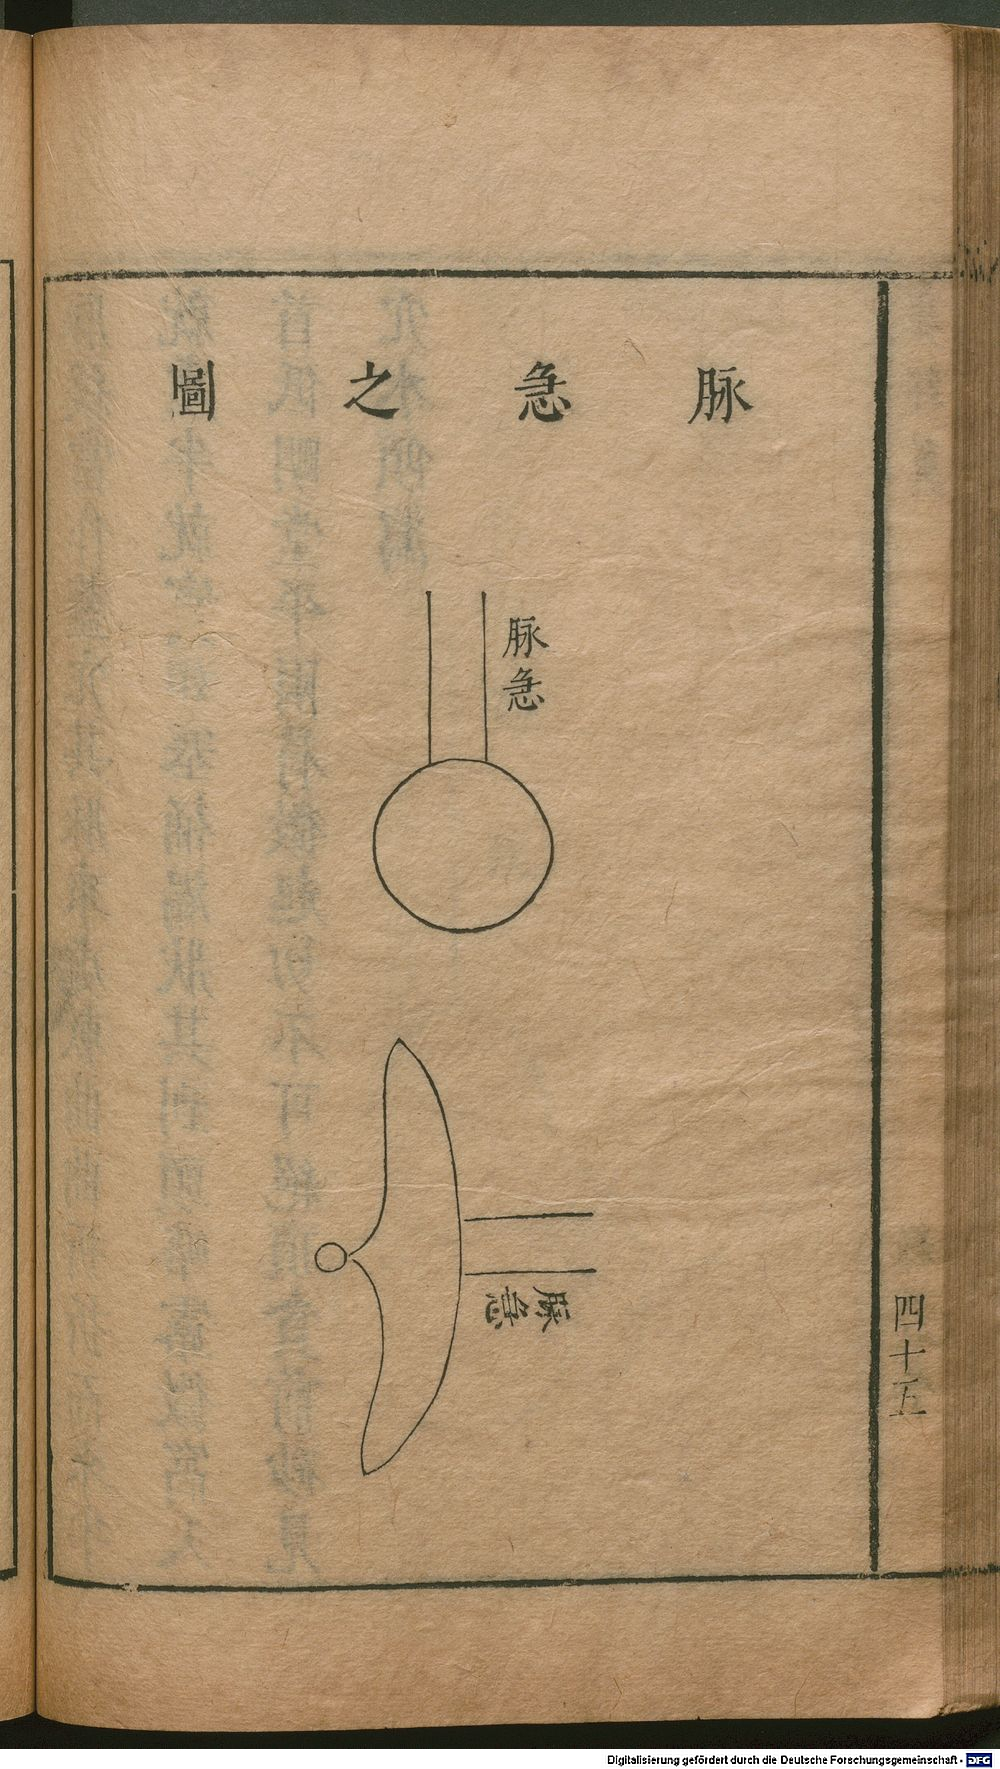 脉急之圖
脉急
脉急
四十五
Digitalisierung gefördert durch die Deutsche Forschungsgemeinschaft - DFG